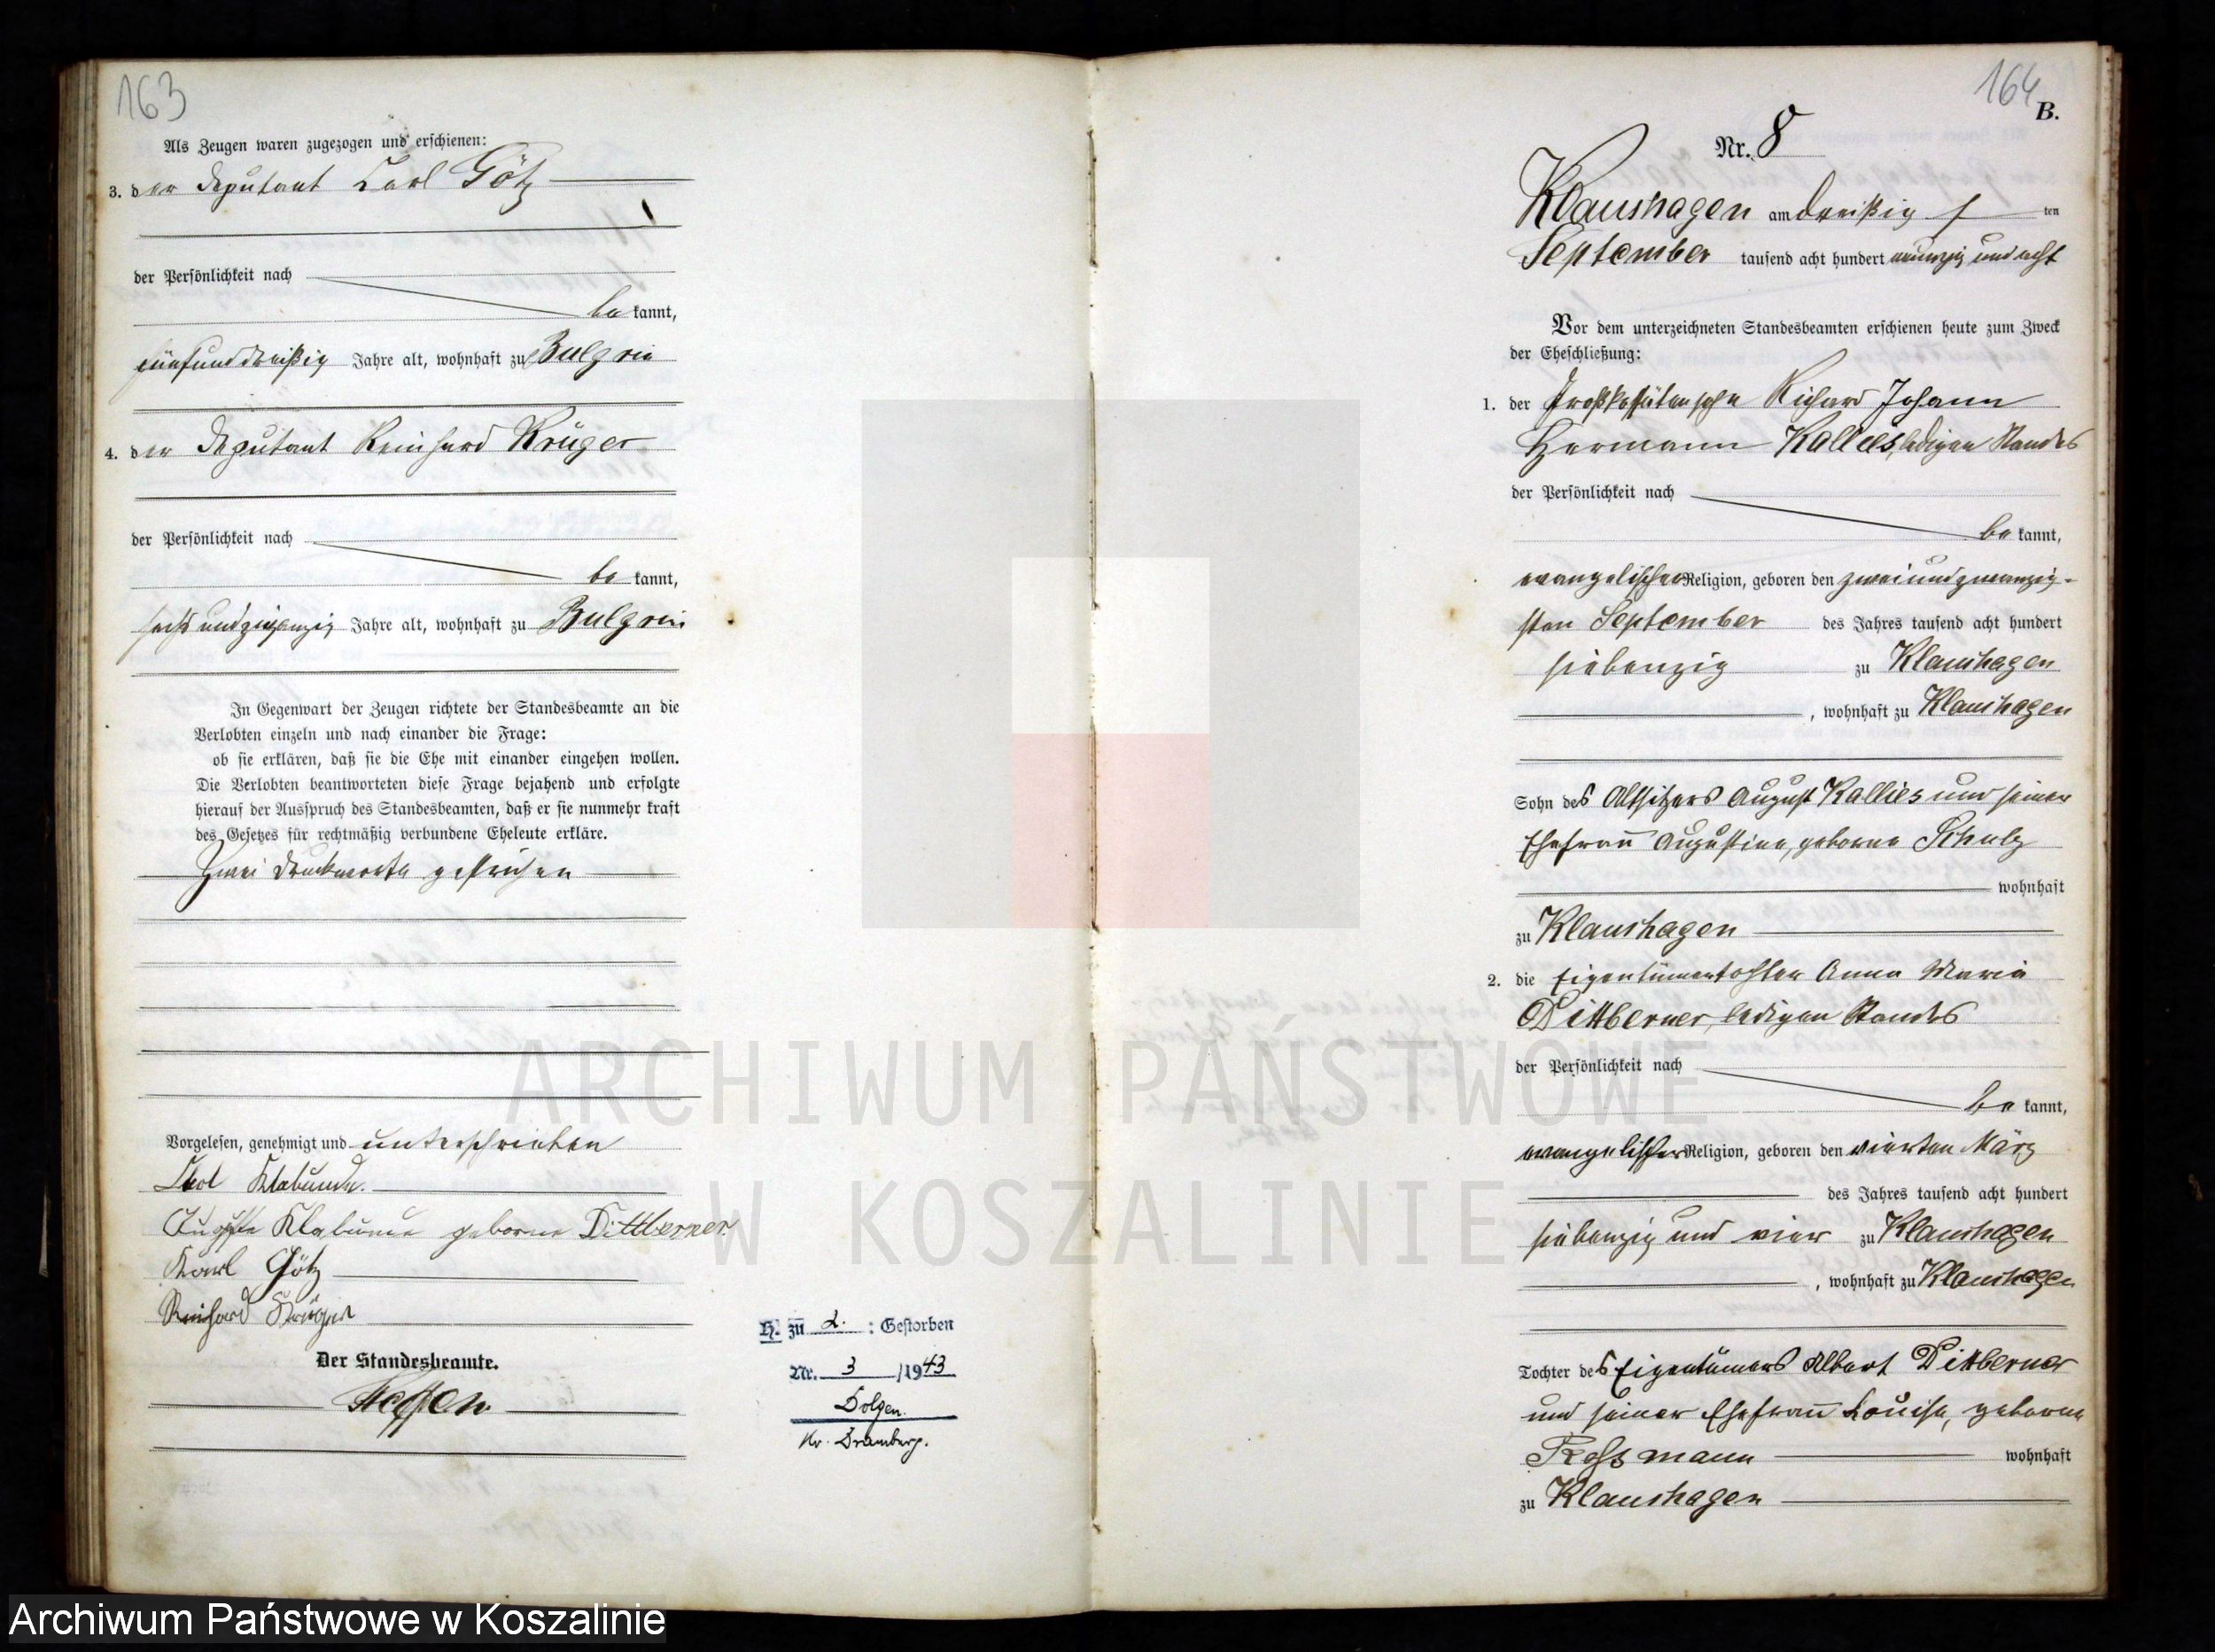 163
Als Zeugen waren zugezogen und erschienen:
3. der Deputant Carl Götz
der Persönlichkeit nach
be kannt,
fünfunddreißig Jahre alt, wohnhaft zu Bulgrin
4. der Deputant Reinhard Krüger
der Persönlichkeit nach
be kannt,
sechsundzwanzig Jahre alt, wohnhaft zu Bulgrin
In Gegenwart der Zeugen richtete der Standesbeamte an die
Verlobten einzeln und nach einander die Frage:
ob sie erklären, daß sie die Ehe mit einander eingehen wollen.
Die Verlobten beantworteten diese Frage bejahend und erfolgte
hierauf der Ausspruch des Standesbeamten, daß er sie nunmehr kraft
des Gesetzes für rechtmäßig verbundene Eheleute erkläre.
Zwei Druckworte gestrichen
Vorgelesen, genehmigt und unterschrieben
Klabunde.
Auguste Klabunde geborne Dittberner.
Karl Götz
Reinhard Krüger
Der Standesbeamte.
H. zu 2. : Gestorben
Nr. 3 /1943
Dolgen.
Kr. Dramburg.
164
B.
Nr. 8
Klaushagen am dreißig s ten
September tausend acht hundert neunzig und acht
Vor dem unterzeichneten Standesbeamten erschienen heute zum Zweck
der Eheschließung:
1. der Großkossätensohn Richard Johann
Hermann Kallies, ledigen Standes
der Persönlichkeit nach
be kannt,
evangelischer Religion, geboren den zweiundzwanzig-
sten September des Jahres tausend acht hundert
siebenzig zu Klaushagen
, wohnhaft zu Klaushagen
Sohn des Altsitzers August Kallies und seiner
Ehefrau Augustine, geborne Schulz
wohnhaft
zu Klaushagen
2. die Eigentümertochter Anna Maria
Dittberner, ledigen Standes
der Persönlichkeit nach
be kannt,
evangelischer Religion, geboren den vierten März
des Jahres tausend acht hundert
siebenzig und vier zu Klaushagen
, wohnhaft zu Klaushagen
Tochter des Eigentümers Albert Dittberner
und seiner Ehefrau Louise, geborne
Rossmann wohnhaft
zu Klaushagen
ARCHIWUM PAŃSTWOWE
W KOSZALINIE
Archiwum Państwowe w Koszalinie